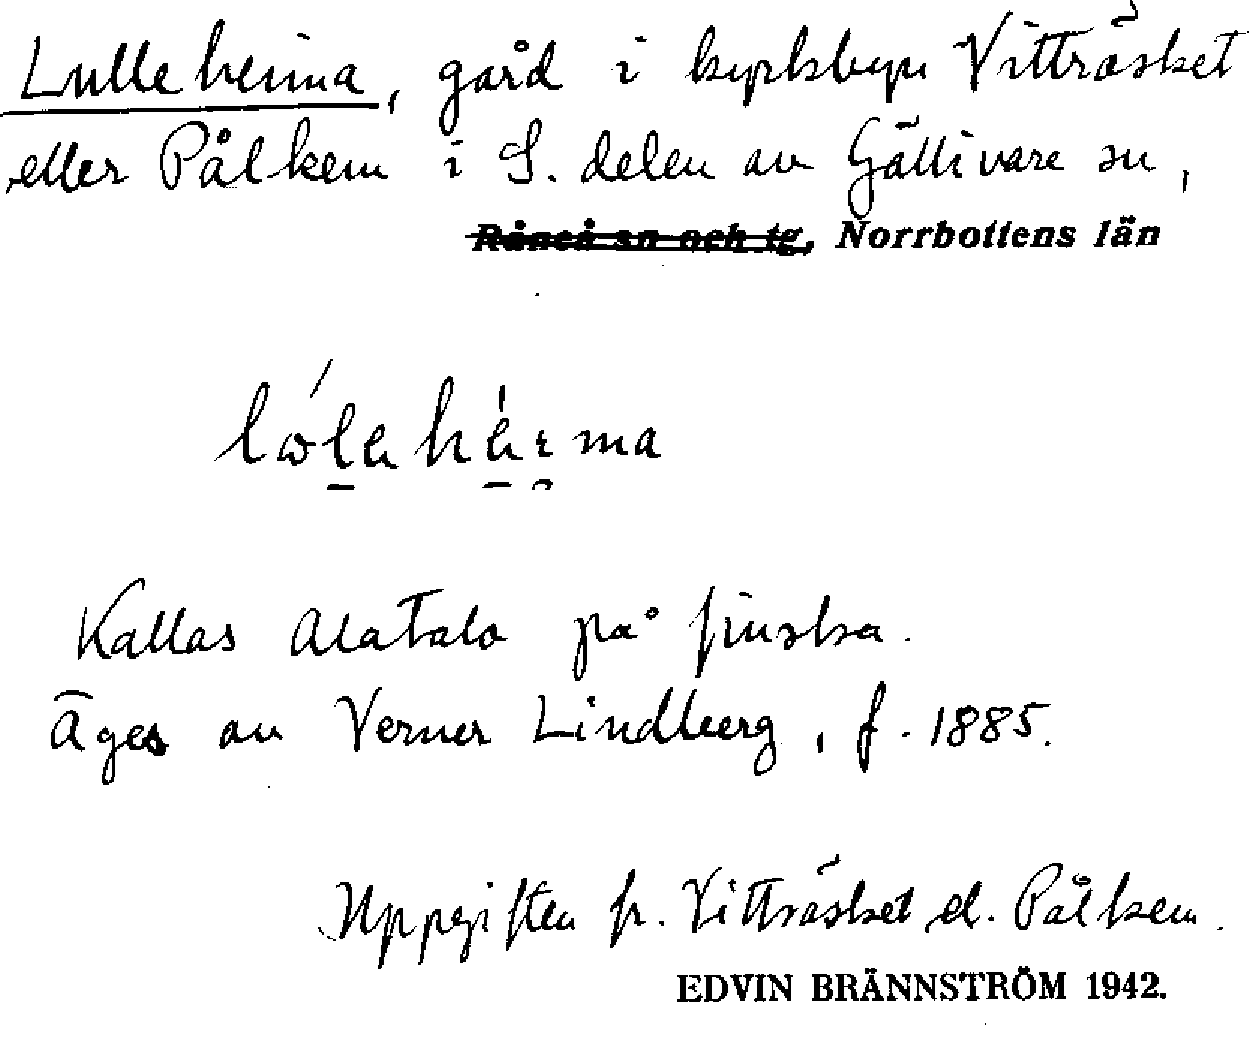 Lulleheima, gård i kyrkbyn Vitträsket
eller Pålkem i S. delen av Gällivare sn,
Råneå sn och tg, Norrbottens län
Kallas Alatalo på finska.
Äges av Verner Lindberg, f. 1885.
Uppgiften fr. Vitträsket el. Pålkem.
EDVIN BRÄNNSTRÖM 1942.